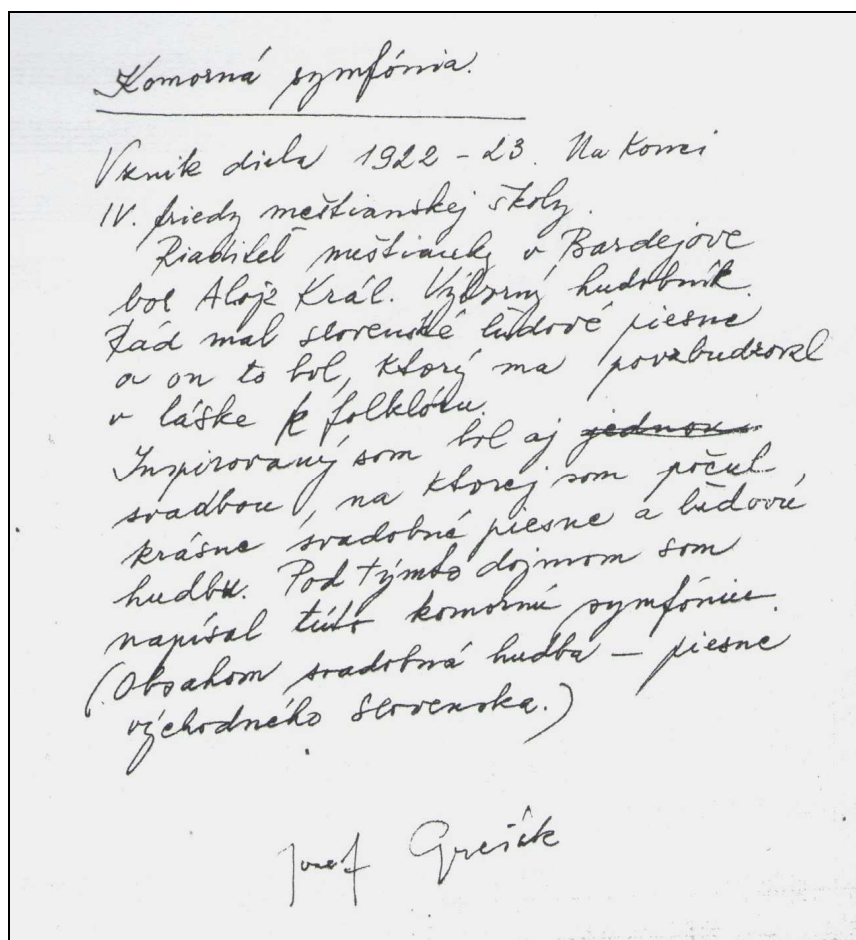 Komorná symfónia.
Vznik diela 1922 – 23. Na konci
IV. triedy meštianskej školy.
Riaditeľ meštianky v Bardejove
bol Alojz Král. Výborný hudobník.
Rád mal slovenské ľudové piesne
a on to bol, ktorý ma povzbudzoval
v láske k folklóru.
Inspirovaný som bol aj jednou
svadbou, na ktorej som počul
krásne svadobné piesne a ľudovú
hudbu. Pod týmto dojmom som
napísal túto komornú symfóniu.
(Obsahom svadobná hudba – piesne
východného Slovenska.)
Jozef Grešák